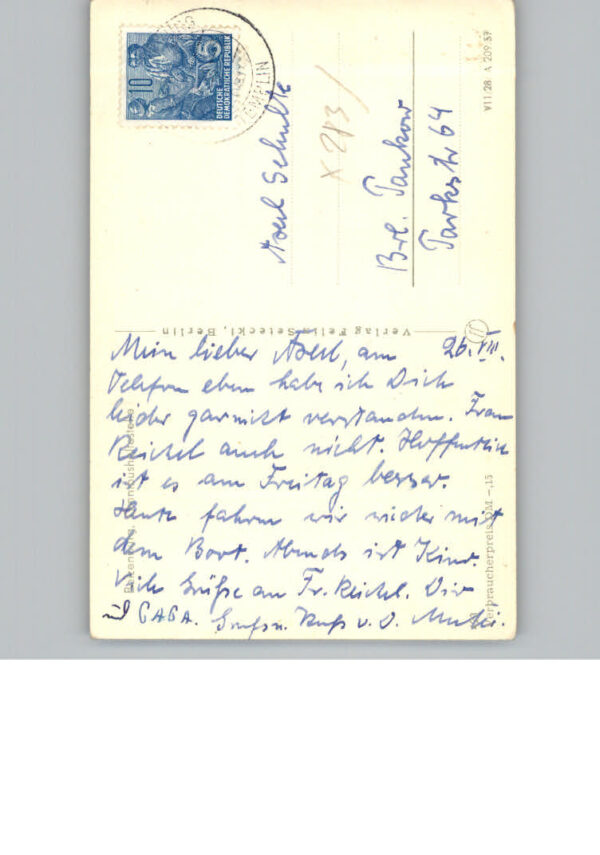 10
DEUTSCHE
DEMOKRATISCHE REPUBLIK
TEMPLIN
Axel Schulte
X 213/
Brl. Pankow
Parkstr 64
VII/28 A 209 57
Verlag Felix Setecki, Berlin
Mein lieber Axel, am 26. VIII.
Telefon eben habe ich Dich
leider garnicht verstanden. Frau
Reichel auch nicht. Hoffentlich
ist es am Freitag besser.
Heute fahren wir wieder mit
dem Boot. Abends ist Kino.
Viele Grüße an Fr. Reichel. Dir
u GAGA. Gruß u. Kuß v. D. Mutter.
Verbraucherpreis DM -,15